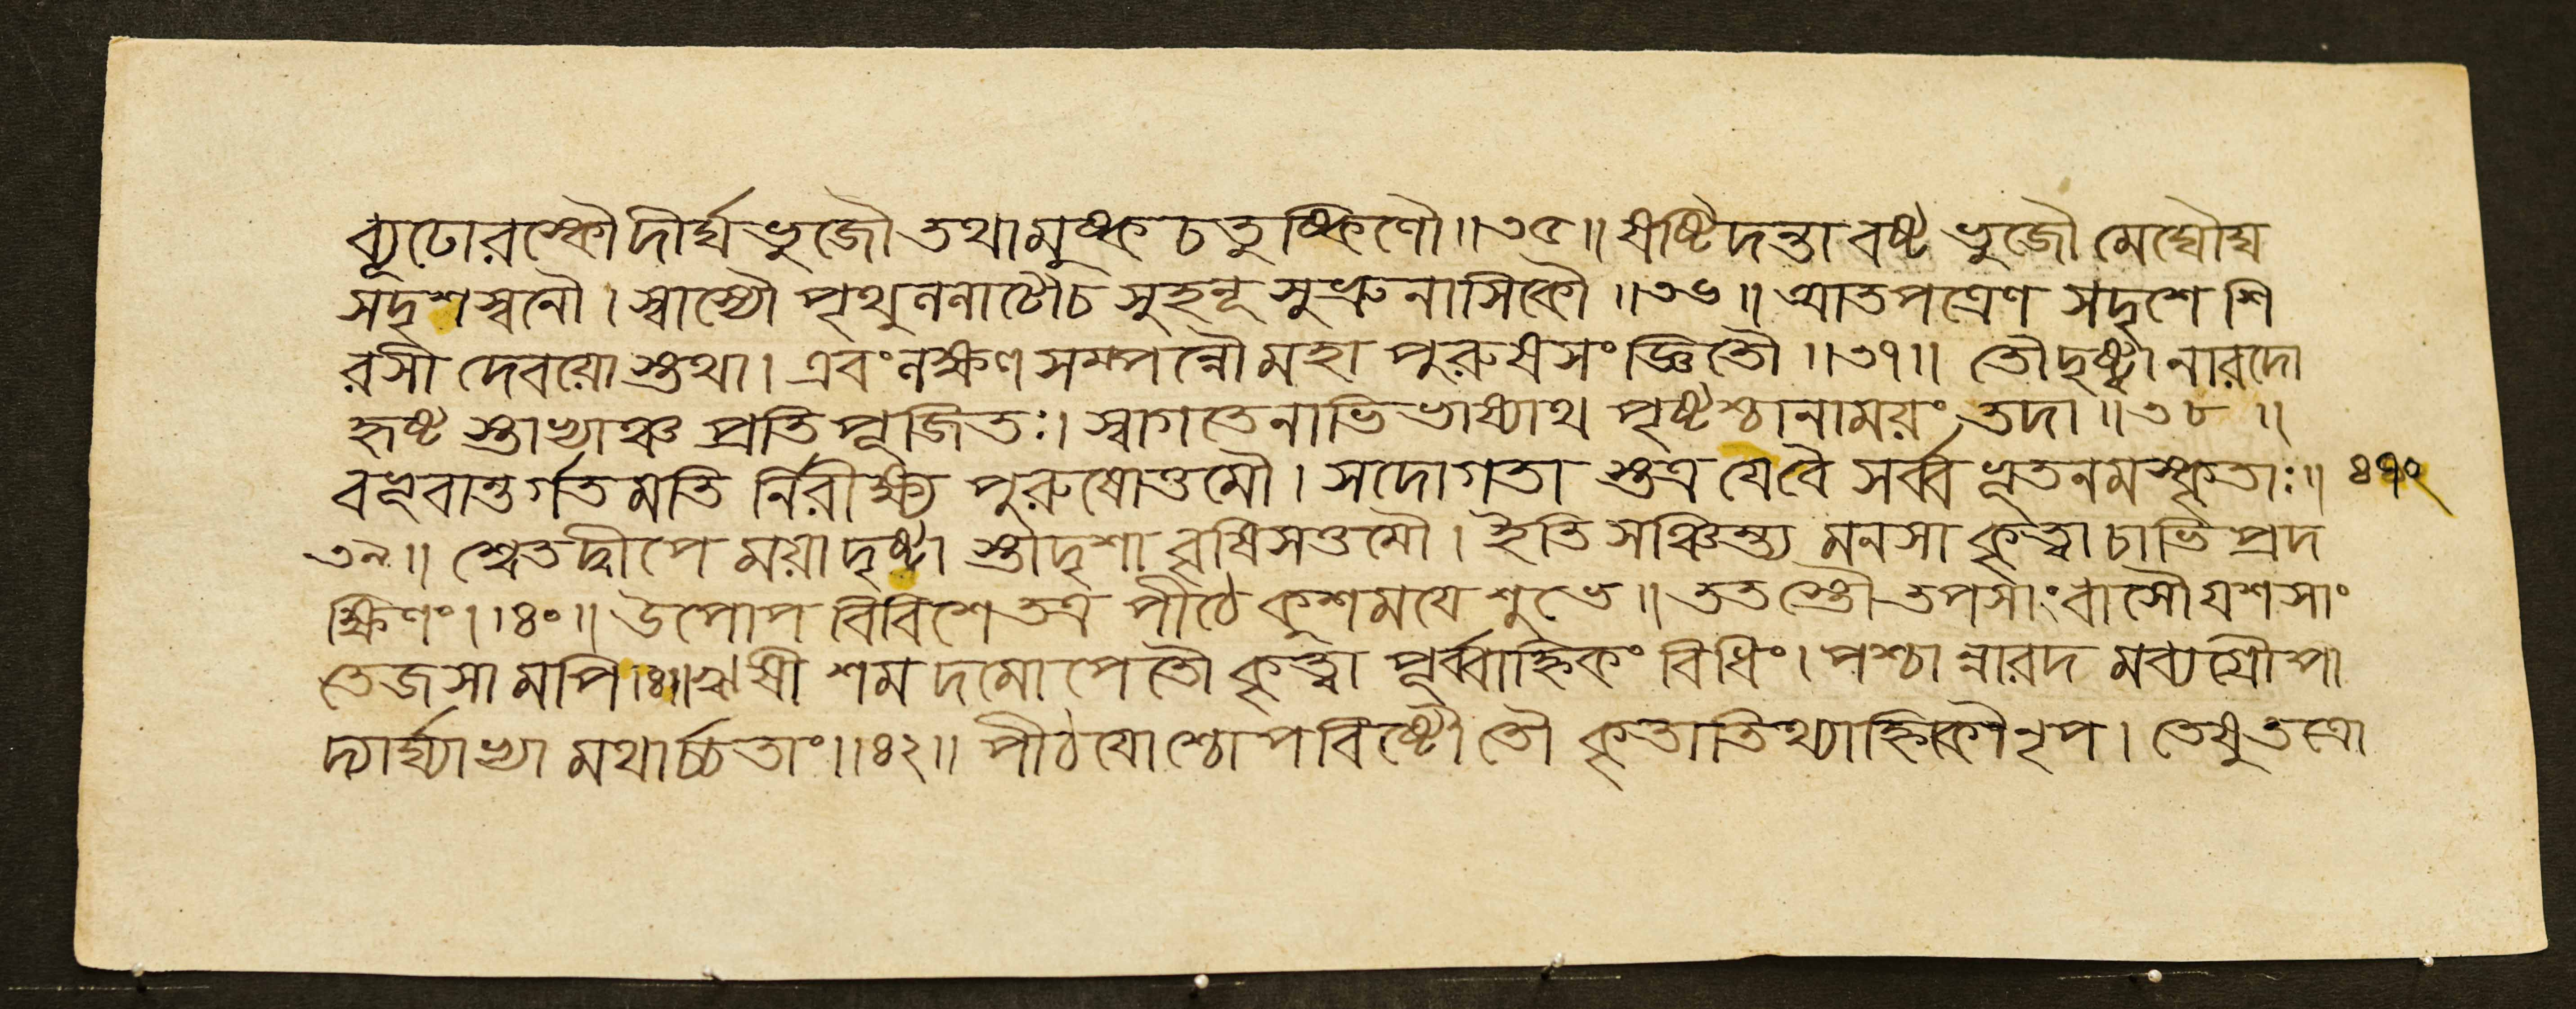 ব্যূঢোরস্কৌ দীর্ঘভুজৌ তথা মুষ্কচতুষ্কিণৌ॥৩৫॥ ষষ্টিদন্তাবষ্টভুজৌ মেঘৌঘ
সদৃশস্বনৌ। স্বাস্যৌ পৃথুললাটৌচ সুহনূ সুভ্রুনাসিকৌ॥৩৬॥ আতপত্রেণ সদৃশে শি
রসী দেবয়োস্তথা। এবংলক্ষণসম্পন্নৌ মহাপুরুষসংজ্ঞিতৌ॥৩৭॥ তৌদৃষ্ট্বা নারদো
হৃষ্টস্তাভ্যাঞ্চ প্রতিপূজিতঃ। স্বাগতেনাভিভাষ্যাথ পৃষ্টশ্চানাময়ং তদা॥৩৮॥
বভূবান্তর্গতমতির্নিরীক্ষ্য পুরুষোত্তমৌ। সদোগতাস্তত্র যেবৈ সর্ব্বভূতনমস্কৃতাঃ॥ ৪৭২
৩৯॥ শ্বেতদ্বীপে ময়া দৃষ্টাস্তাদৃশাবৃষিসত্তমৌ। ইতি সঞ্চিন্ত্য মনসা কৃত্বা চাভিপ্রদ
ক্ষিণং॥৪০॥ উপোপবিবিশে তত্র পীঠে কুশময়ে শুভে॥ ততস্তৌ তপসাং বাসৌ যশসাং
তেজসামপি॥৪১॥ ঋষী শমদমোপেতৌ কৃত্বা পূর্ব্বাহ্নিকং বিধিং। পশ্চান্নারদমব্যগ্রৌ পা
দ্যার্ঘ্যাভ্যামথার্চ্চতাং॥৪২॥ পীঠয়োশ্চোপবিষ্টৌ তৌ কৃতাতিথ্যাহ্নিকৌ নৃপ। তেষু তত্রো